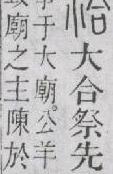 祫大合祭先
事于大廟。公羊
毀廟之主陳於